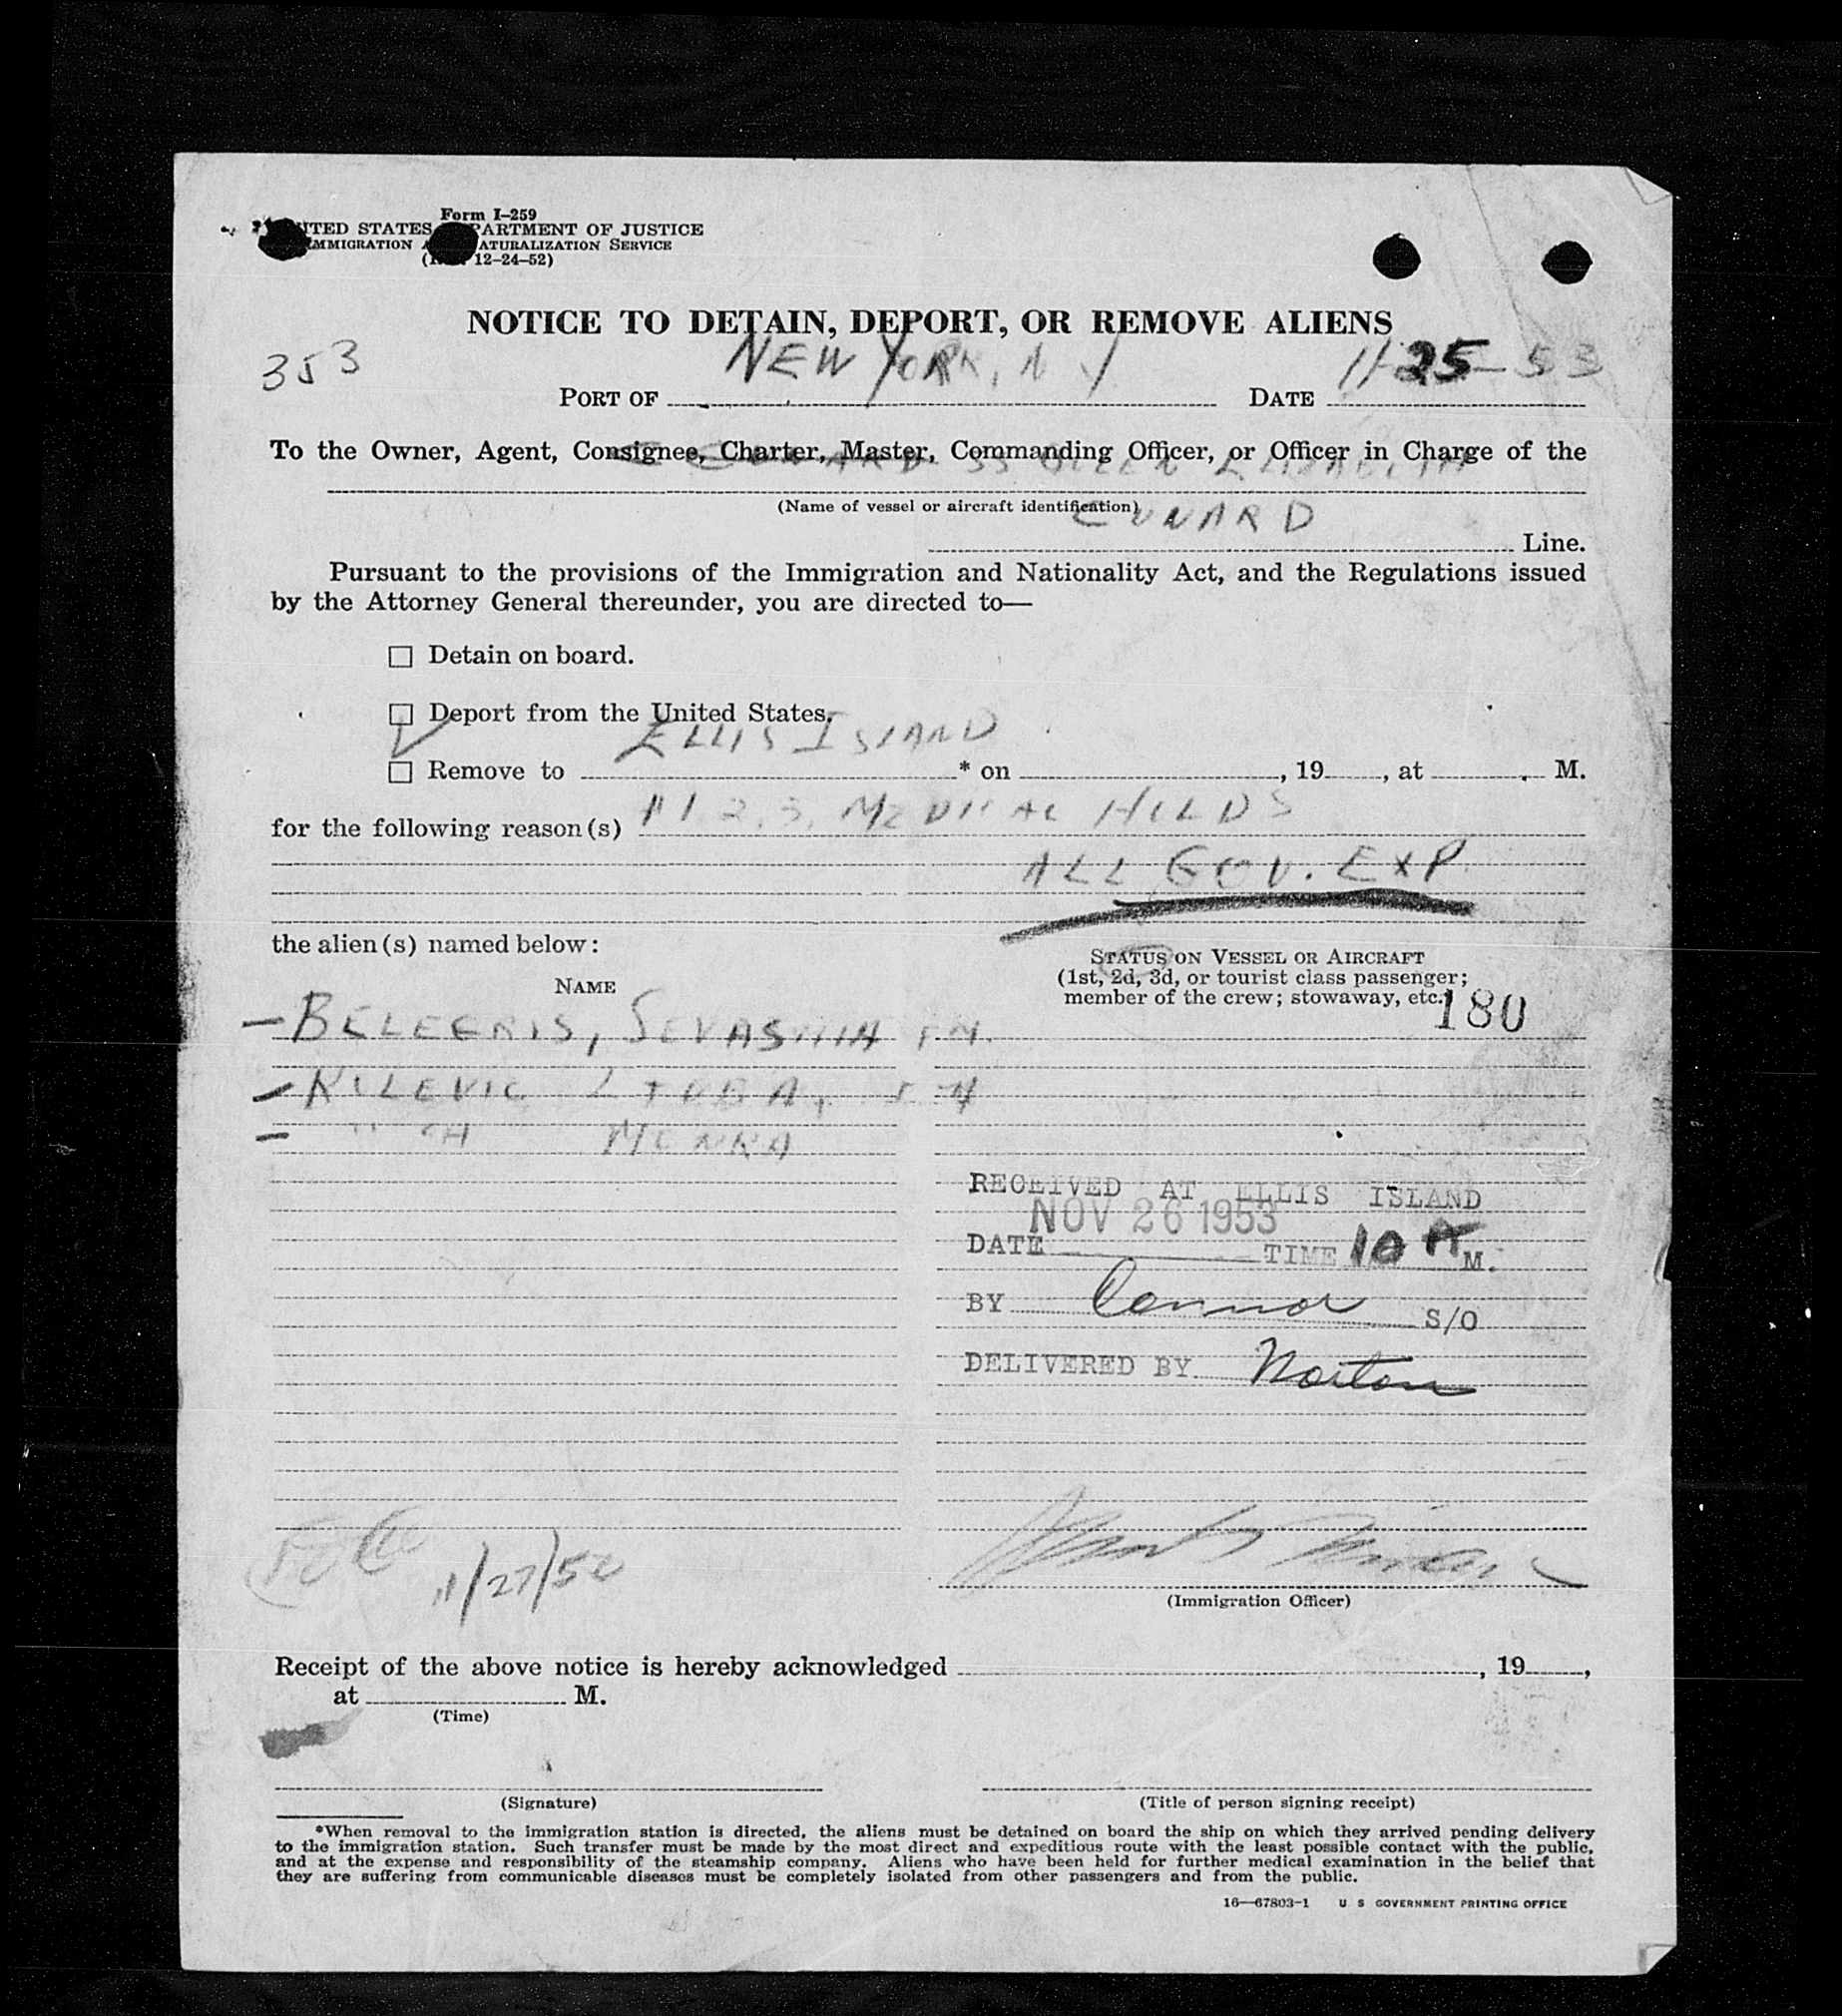 Form I–259
UNITED STATES DEPARTMENT OF JUSTICE
IMMIGRATION AND NATURALIZATION SERVICE
12–24–52)
NOTICE TO DETAIN, DEPORT, OR REMOVE ALIENS
353
PORT OF NEW YORK, N Y DATE 11-25-53
To the Owner, Agent, Consignee, Charter, Master, Commanding Officer, or Officer in Charge of the
SS QUEEN ELIZABETH
(Name of vessel or aircraft identification)
CUNARD Line.
Pursuant to the provisions of the Immigration and Nationality Act, and the Regulations issued
by the Attorney General thereunder, you are directed to—
☐ Detain on board.
☐ Deport from the United States.
☐ Remove to ELLIS ISLAND * on , 19 , at . M.
for the following reason(s) #1 2, 3, MEDICAL HELDS
ALL GOV. EXP
the alien(s) named below:
NAME
STATUS ON VESSEL OR AIRCRAFT
(1st, 2d, 3d, or tourist class passenger;
member of the crew; stowaway, etc.)
180
– BELEGRIS, SEVASTITA
–
–
RECEIVED AT ELLIS ISLAND
DATE NOV 26 1953 TIME 10 A M.
BY Connor S/O
DELIVERED BY Norton
11/27/5
(Immigration Officer)
Receipt of the above notice is hereby acknowledged , 19 ,
at M.
(Time)
(Signature)
(Title of person signing receipt)
*When removal to the immigration station is directed, the aliens must be detained on board the ship on which they arrived pending delivery
to the immigration station. Such transfer must be made by the most direct and expeditious route with the least possible contact with the public,
and at the expense and responsibility of the steamship company. Aliens who have been held for further medical examination in the belief that
they are suffering from communicable diseases must be completely isolated from other passengers and from the public.
16—67803-1 U S GOVERNMENT PRINTING OFFICE